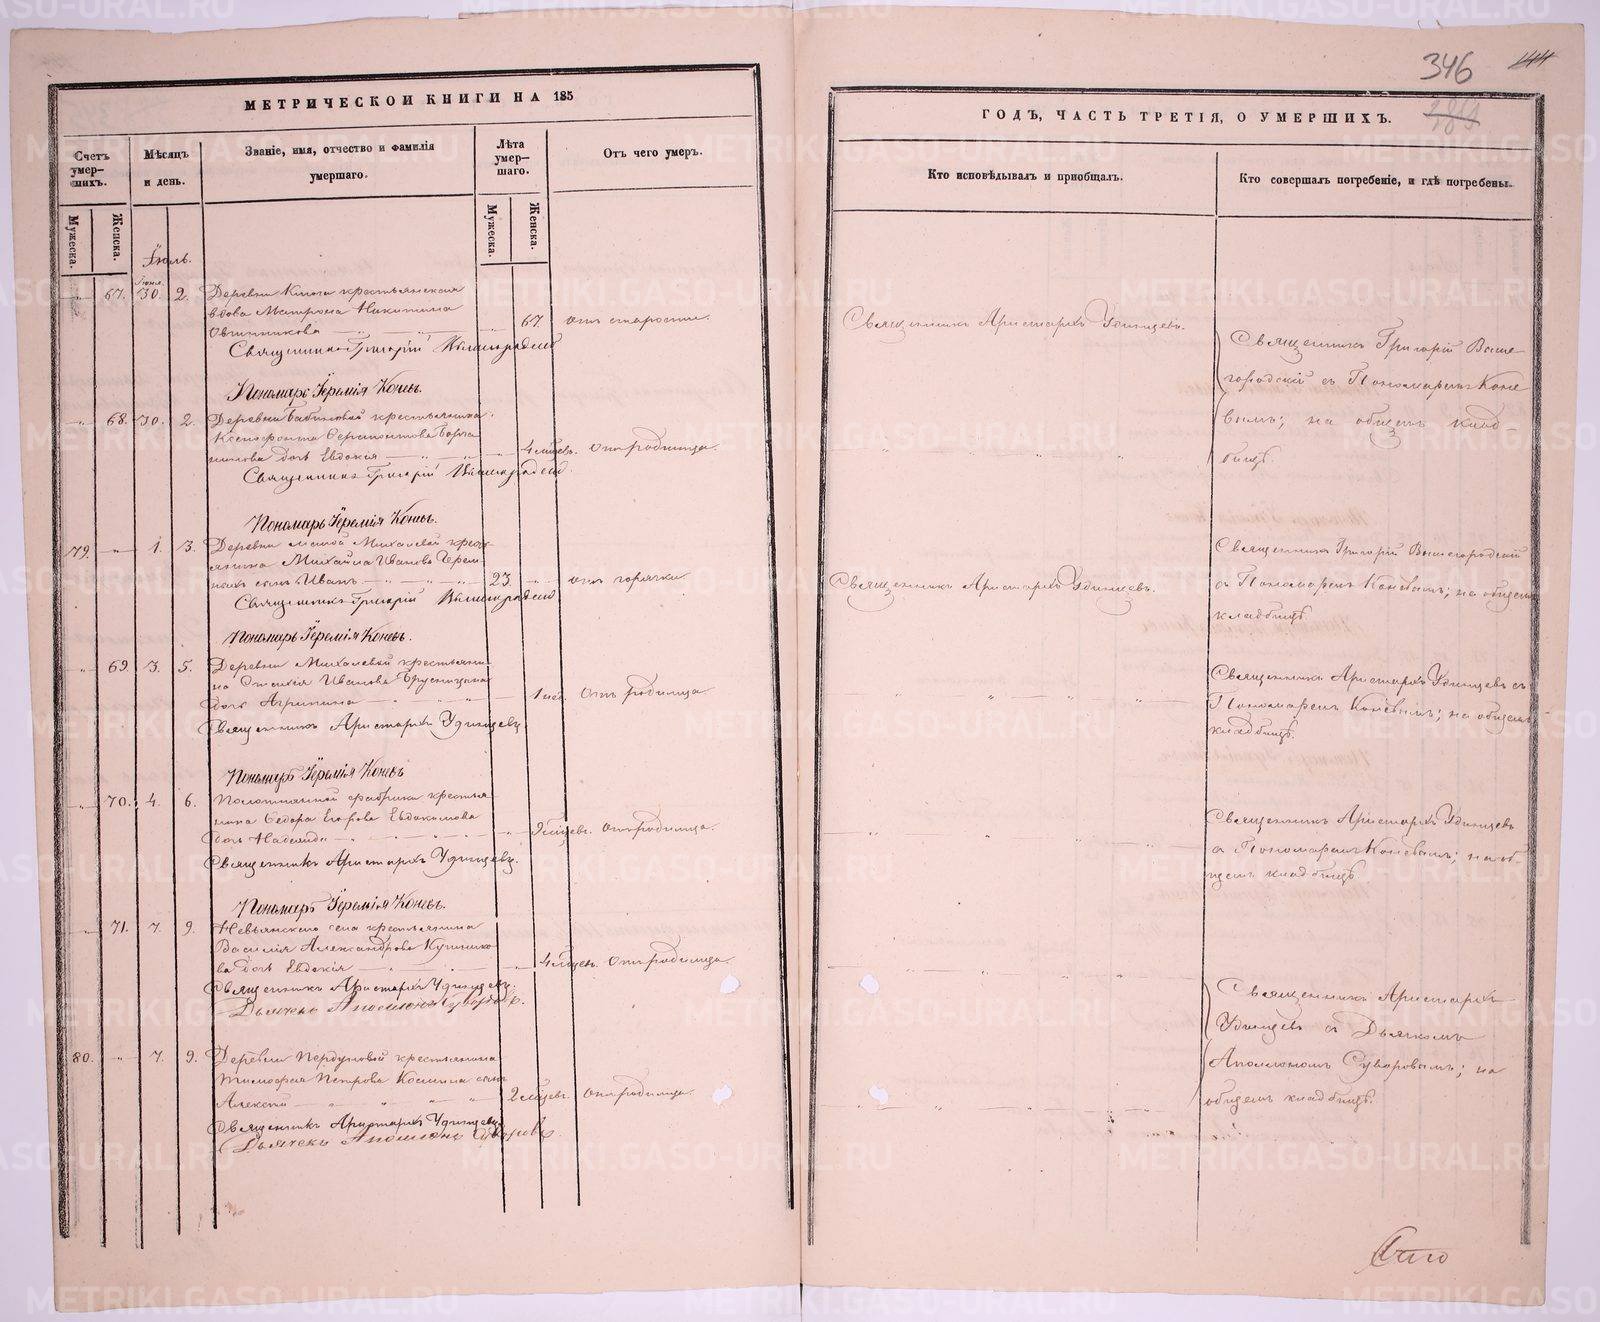 МЕТРИЧЕСКОЙ КНИГИ НА 185
Счетъ умер-шихъ.
Мужеска.
Женска.
Мѣсяцъ и день.
Званіе, имя, отчество и фамилія умершаго.
Лѣта умер-шаго.
Мужеска.
Женска.
Отъ чего умеръ.
Іюль.
67. Іюня 30. 2. Деревни крестьянская
вдова Матрона Никитина
Овчинникова 67. отъ старости.
Священникъ Григорій
Пономарь Іеремія Коневъ.
68. 30. 2. Деревни Бабиновой крестьянина
Ксенофонта
дочь Евдокія 4 мѣсяц. Отъ родимца.
Священникъ Григорій
Пономарь Іеремія Коневъ.
79. 1. 3. Деревни малой Михалевой крестья
янина Михайла Иванова
сынъ Иванъ 23. отъ горячки
Священникъ Григорій
Пономарь Іеремія Коневъ.
69. 3. 5. Деревни Михалевой крестьяни-
на Иванова Брусницына
дочь Агрипина 1 Отъ родимца
Священникъ Аристархъ Удинцевъ.
Пономарь Іеремія Коневъ
70. 4. 6. Полотняной фабрики крестья
нина Ѳедора Егорова Евдокимова
дочь 9 мѣсяц. Отъ родимца.
Священникъ Аристархъ Удинцевъ.
Пономарь Іеремія Коневъ.
71. 7. 9. Невьянскаго села крестьянина
Василія Александрова
ва дочь Евдокія 4 мѣсяц. Отъ родимца.
Священникъ Аристархъ Удинцевъ.
Дьячекъ Аполлонъ Суворовъ.
80. 7. 9. Деревни крестьянина
Тимофея Петрова Космина сынъ
Алексѣй 2 мѣсяц. Отъ родимца.
Священникъ Аристархъ Удинцевъ
Дьячекъ Аполлонъ Суворовъ.
346
ГОДЪ, ЧАСТЬ ТРЕТІЯ, О УМЕРШИХЪ.
Кто исповѣдывалъ и приобщалъ.
Кто совершалъ погребеніе, и гдѣ погребены.
Священникъ Аристархъ Удинцевъ.
Священникъ Григорій Выше
городскій съ Пономаремъ Коне
вымъ; на общемъ клад-
бищѣ.
Священникъ Аристархъ Удинцевъ.
Священникъ Григорій Вышегородскій
съ Пономаремъ Коневымъ; на общемъ
кладбищѣ.
Священникъ Аристархъ Удинцевъ съ
Пономаремъ Коневымъ; на общемъ
кладбищѣ.
Священникъ Аристархъ Удинцевъ
съ Пономаремъ Коневымъ; на об-
щемъ кладбищѣ.
Священникъ Аристархъ
Удинцевъ съ Дьячкомъ
Аполлономъ Суворовымъ; на
общемъ кладбищѣ.
METRIKI.GASO-URAL.RU